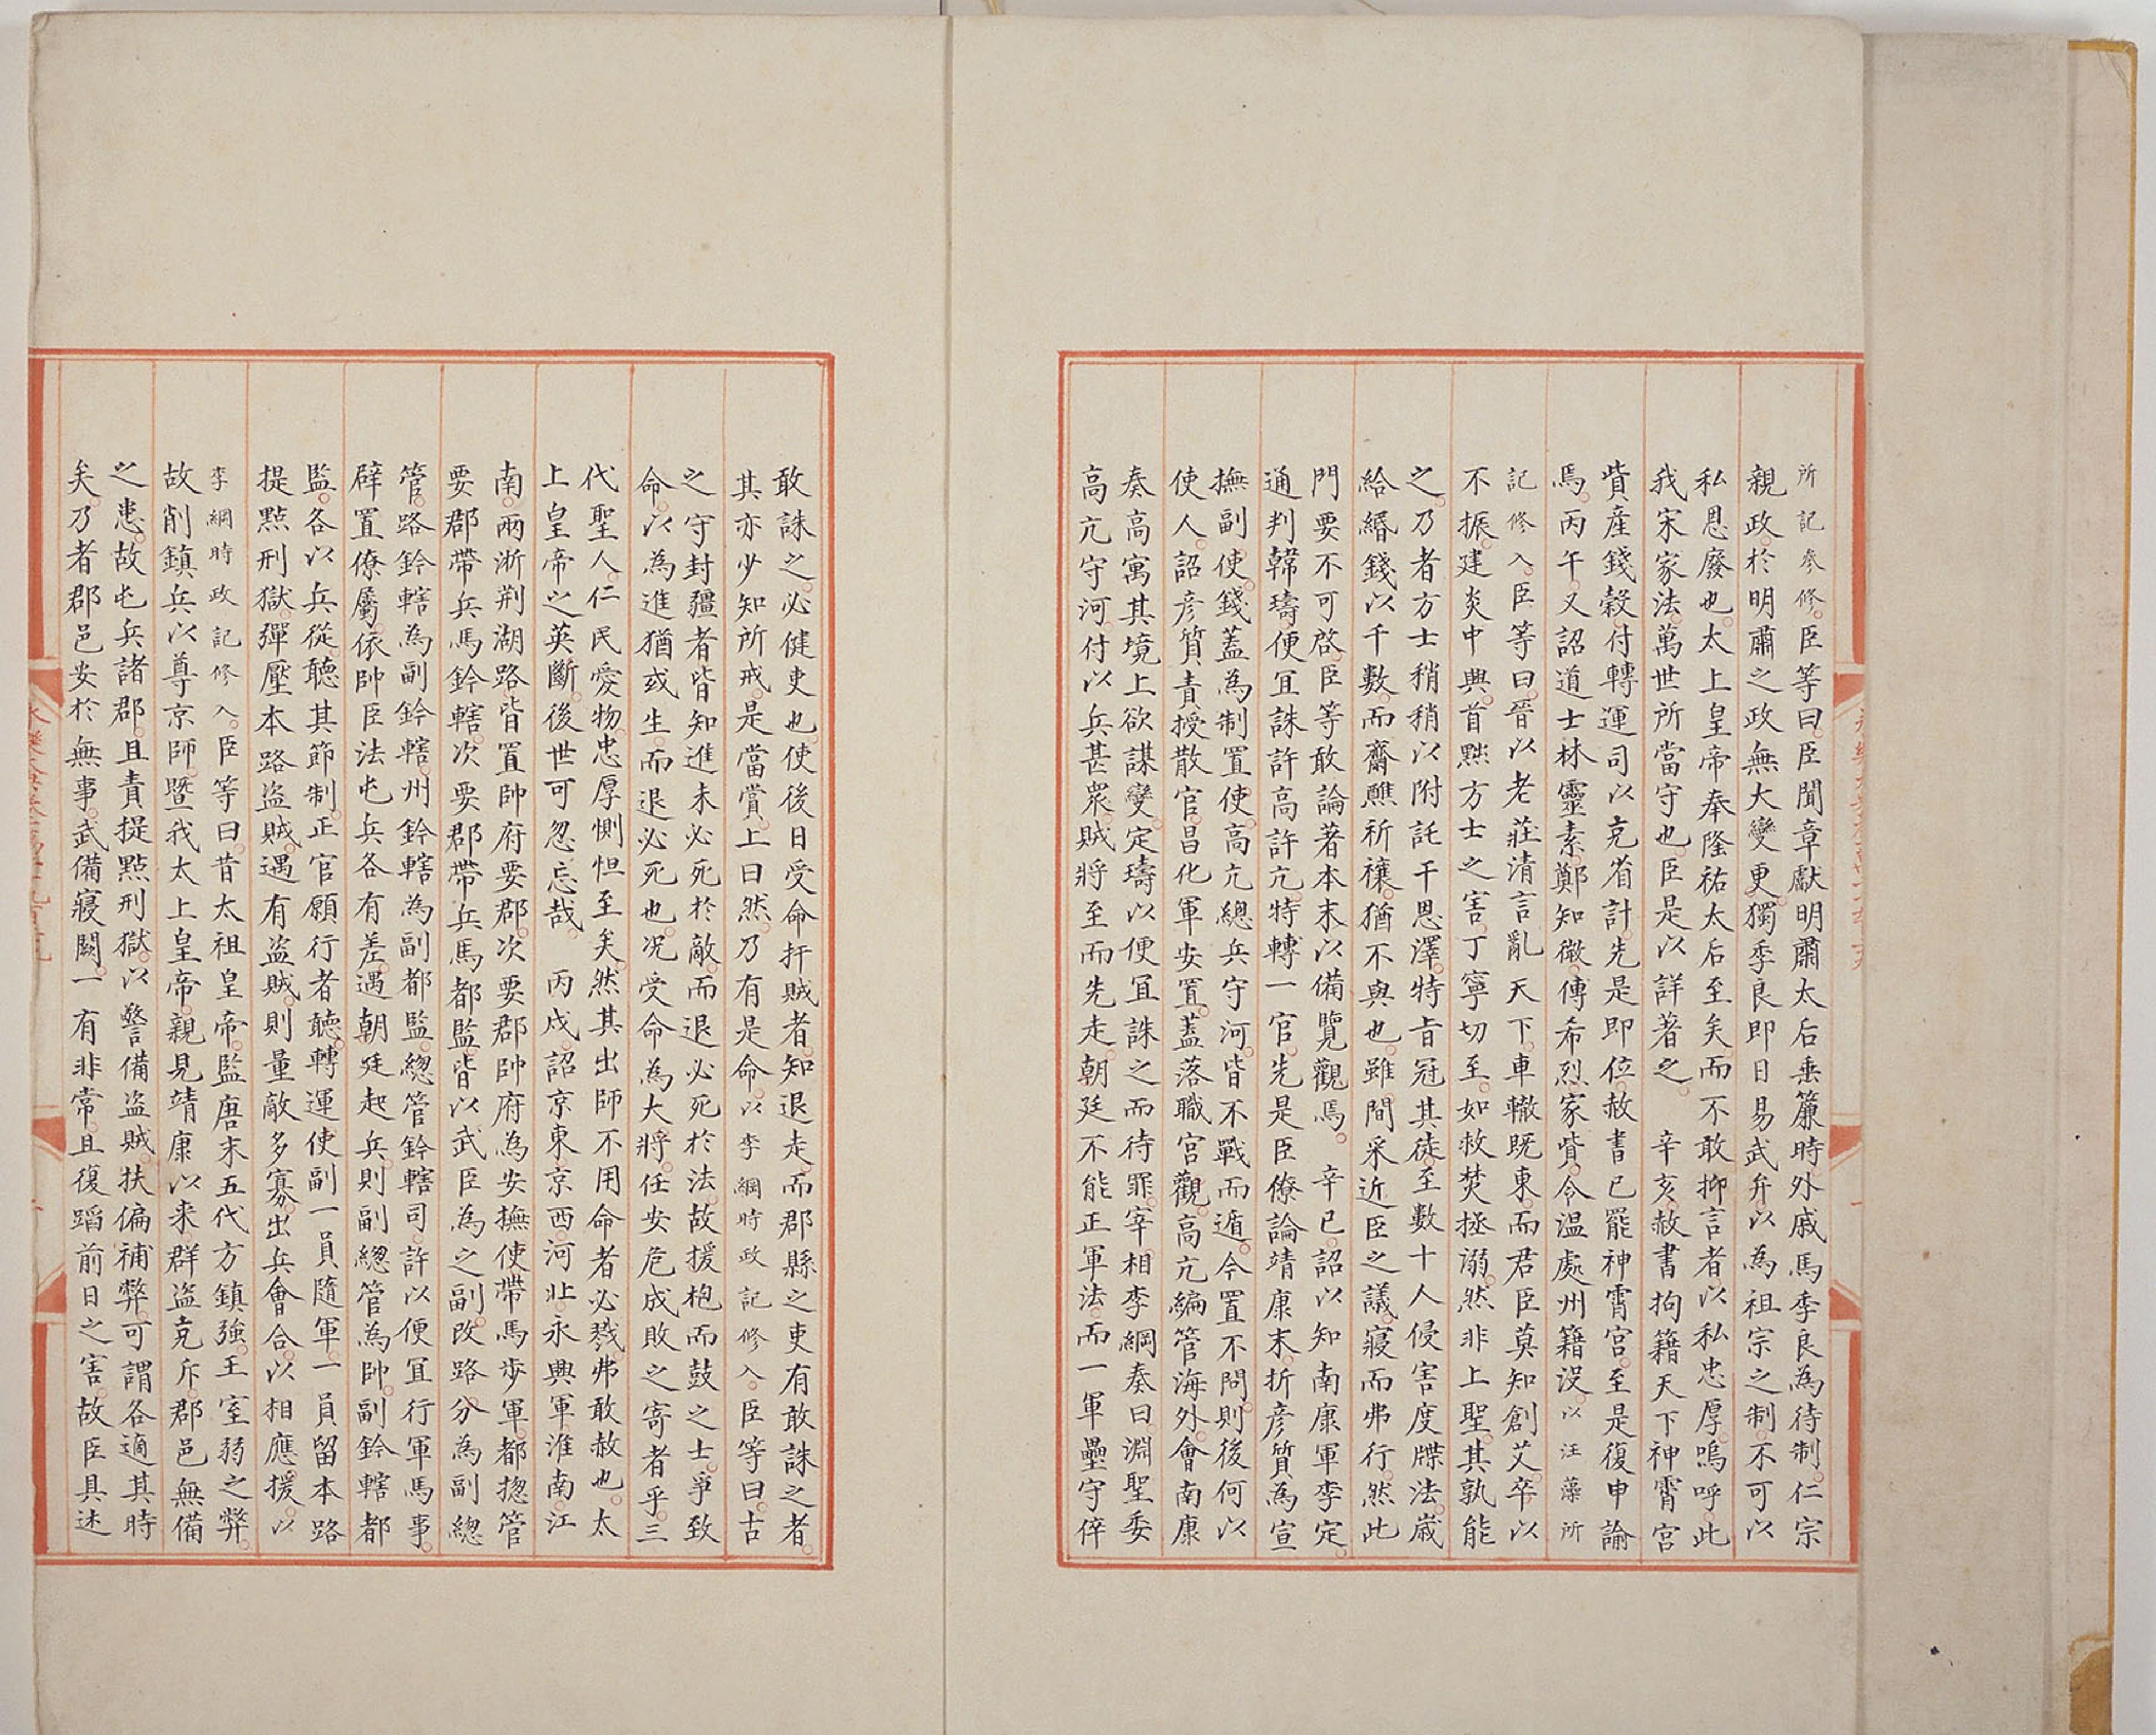 所記參修臣等曰臣聞章獻明肅太后垂簾時外戚馬季良為待制仁宗
親政於明肅之政無大變更獨季良即日易武弁以為祖宗之制不可以
私恩廢也太上皇帝奉隆祐太后至矣而不敢抑言者以私忠厚嗚呼此
我宋家法萬世所當守也臣是以詳著之 辛亥赦書拘籍天下神霄宮
貲產錢穀付轉運司以克省計先是即位赦書已罷神霄宮至是復申諭
焉丙午又詔道士林靈素鄭知微傅希烈家貲令溫處州籍沒以汪藻所
記修入臣等曰晉以老莊清言亂天下車轍既東而君臣莫知創艾卒以
不振建炎中興首㸃方士之害丁寧切至如救焚拯溺然非上聖其孰能
之乃者方士稍稍以附託干恩澤特旨冠其徒至數十人侵害度牒法歲
給緡錢以千數而齋醮祈禳猶不與也雖間采近臣之議寢而弗行然此
門要不可啓臣等敢論著本末以備覽觀焉 辛巳詔以知南康軍李定
通判韓璹便宜誅許高許亢特轉一官先是臣僚論靖康末折彥質為宣
撫副使錢蓋為制置使高亢總兵守河皆不戰而遁今置不問則後何以
使人詔彥質責授散官昌化軍安置蓋落職宮觀高亢編管海外會南康
奏高寓其境上欲謀變定璹以便宜誅之而待罪宰相李綱奏曰淵聖委
高亢守河付以兵甚眾賊將至而先走朝廷不能正軍法而一軍壘守倅
敢誅之必健吏也使後日受命扞賊者知退走而郡縣之吏有敢誅之者
其亦少知所戒是當賞上曰然乃有是命以李綱時政記修入臣等曰古
之守封疆者皆知進未必死於敵而退必死於法故援枹而鼓之士爭致
命以為進猶或生而退必死也况受命為大將任安危成敗之寄者乎三
代聖人仁民愛物忠厚惻怛至矣然其出師不用命者必戮弗敢赦也太
上皇帝之英斷後世可忽忘哉 丙戌詔京東京西河北永興軍淮南江
南兩浙荆湖路皆置帥府要郡次要郡帥府為安撫使帶馬步軍都揔管
要郡帶兵馬鈐轄次要郡帶兵馬都監皆以武臣為之副改路分為副總
管路鈐轄為副鈐轄州鈐轄為副都監總管鈐轄司許以便宜行軍馬事
辟置僚屬依帥臣法屯兵各有差遇朝廷起兵則副總管為帥副鈐轄都
監各以兵從聽其節制正官願行者聽轉運使副一員隨軍一員留本路
提㸃刑獄彈壓本路盜賊遇有盜賊則量敵多寡出兵會合以相應援以
李綱時政記修入臣等曰昔太祖皇帝監唐末五代方鎮強王室弱之弊
故削鎮兵以尊京師暨我太上皇帝親見靖康以来群盜克斥郡邑無備
之患故屯兵諸郡且責提㸃刑獄以警備盜賊扶偏補弊可謂各適其時
矣乃者郡邑安於無事武備寢闕一有非常且復蹈前日之害故臣具述